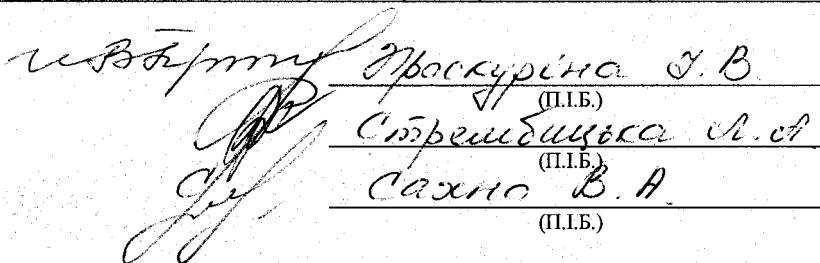 Проскуріна І. В
(П.І.Б.)
Стрембицька Л. А
(П.І.Б.)
Сахно В. А.
(П.І.Б.)